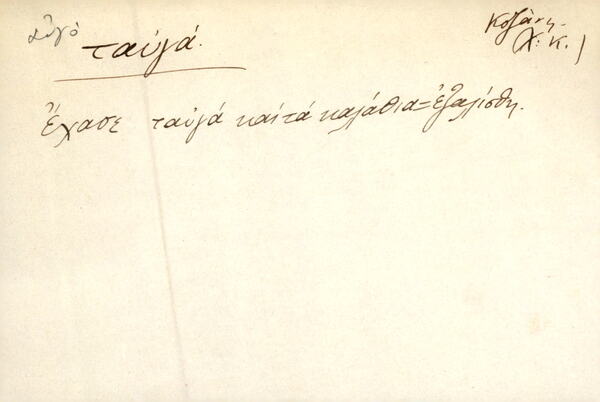 αὐγό
ταὐγά.
Κοζάνη.
Χ. Κ.)
Ἔχασε ταὐγά καί τά καλάθια = ἐζαλίσθη.